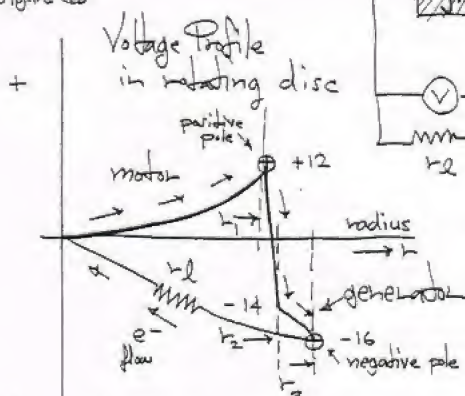 Voltage Profile
in rotating disc
+
positive
pole
+12
motor
V
rl
r1
radius
r
rl
-14
generator
e-
flow
r2
-16
negative pole